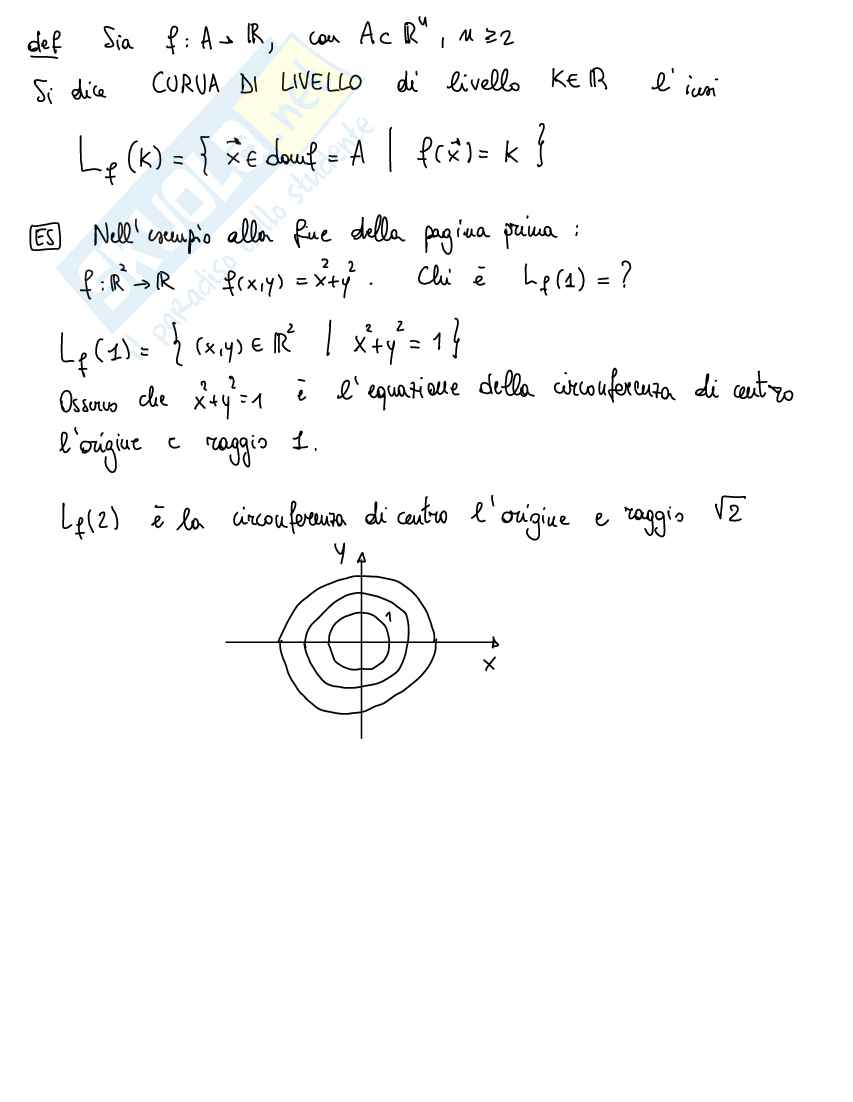 def Sia f: A → ℝ, con A ⊂ ℝⁿ, n ≥ 2
Si dice CURVA DI LIVELLO di livello K ∈ ℝ l'insi
L_f (k) = { x⃗ ∈ domf = A | f(x⃗) = k }
ES Nell'esempio alla fine della pagina prima :
f: ℝ² → ℝ f(x,y) = x² + y² . Chi è L_f (1) = ?
L_f (1) = { (x,y) ∈ ℝ² | x² + y² = 1 }
Osservo che x² + y² = 1 è l'equazione della circonferenza di centro
l'origine e raggio 1.
L_f (2) è la circonferenza di centro l'origine e raggio √2
y
1
x
SKUOLA.net
il paradiso dello studente